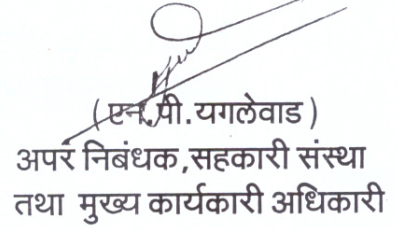 ( एन.पी.यगलेवाड )
अपर निबंधक,सहकारी संस्था
तथा मुख्य कार्यकारी अधिकारी